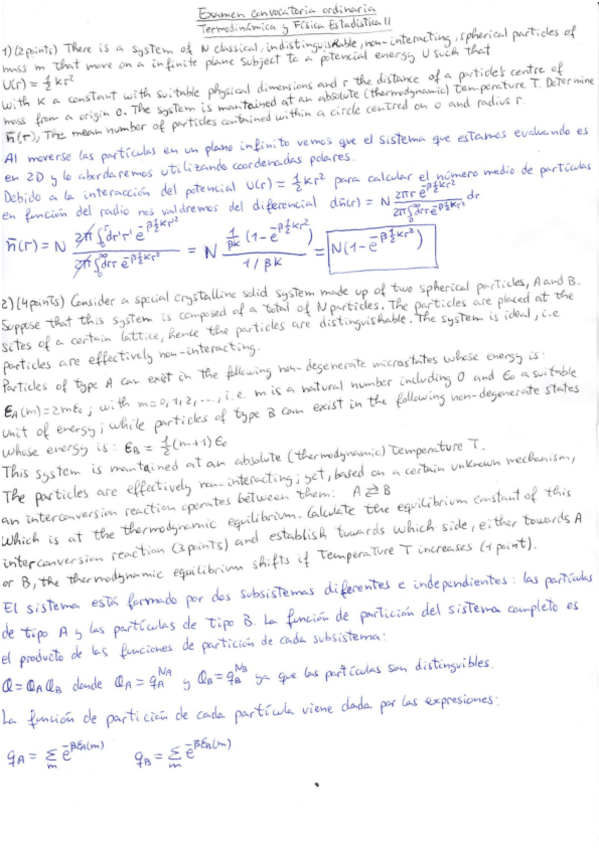 Examen convocatoria ordinaria
Termodinámica y Física Estadística II
1) (2points) There is a system of N classical, indistinguishable, non-interacting, spherical particles of
mass m that move on a infinite plane subject to a potencial energy U such that
U(r) = 1/2 Kr²
with K a constant with suitable physical dimensions and r the distance of a particle's centre of
mass from a origin O. The system is mantained at an absolute (thermodynamic) temperature T. Determine
n̄(r), The mean number of particles contained within a circle centred on O and radius r.
Al moverse las partículas en un plano infinito vemos que el sistema que estamos evaluando es
en 2D y lo abordaremos utilizando coordenadas polares.
Debido a la interacción del potencial U(r) = 1/2 Kr² para calcular el número medio de partículas
en función del radio nos valdremos del diferencial dn̄(r) = N (2πr e^(-β 1/2 Kr²)) / (2π∫₀^∞ dr r e^(-β 1/2 Kr²)) dr
n̄(r) = N (2π∫₀^r dr' r' e^(-β 1/2 Kr'²)) / (2π∫₀^∞ dr r e^(-β 1/2 Kr²)) = N (1/βK (1-e^(-β 1/2 Kr²))) / (1/βK) = N(1-e^(-β 1/2 Kr²))
2) (4points) Consider a special crystalline solid system made up of two spherical particles, A and B.
Suppose that this system is composed of a total of N particles. The particles are placed at the
sites of a certain lattice, hence the particles are distinguishable. The system is ideal, i.e
particles are effectively non-interacting.
Particles of type A can exist in the following non-degenerate microstates whose energy is:
ϵA(m) = 2mϵ₀; with m=0,1,2,..., i.e. m is a natural number including 0 and ϵ₀ a suitable
unit of energy; while particles of type B can exist in the following non-degenerate states
whose energy is: ϵB = 1/2 (m+1) ϵ₀
This system is mantained at an absolute (thermodynamic) temperature T.
The particles are effectively non-interacting; yet, based on a certain unknown mechanism,
an interconversion reaction operates between them: A ⇄ B
Which is at the thermodynamic equilibrium. Calculate the equilibrium constant of this
interconversion reaction (3points) and establish towards which side, either towards A
or B, the thermodynamic equilibrium shifts if Temperature T increases (1 point).
El sistema está formado por dos subsistemas diferentes e independientes: las partículas
de tipo A y las partículas de tipo B. La función de partición del sistema completo es
el producto de las funciones de partición de cada subsistema:
Q = QA QB donde QA = qA^NA y QB = qB^NB ya que las partículas son distinguibles.
La función de partición de cada partícula viene dada por las expresiones:
qA = Σm e^(-βϵA(m)) qB = Σm e^(-βϵB(m))